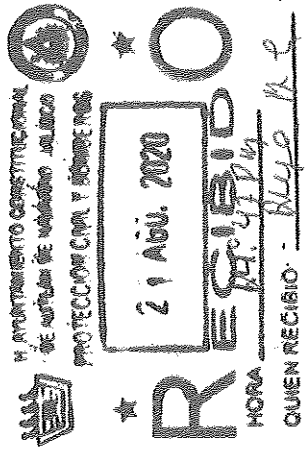 H. AYUNTAMIENTO CONSTITUCIONAL
DE AUTLAN DE NAVARRO JALISCO
PROTECCION CIVIL Y BOMBEROS
21 AGO. 2020
RECIBIDO
HORA
QUIEN RECIBIO.-